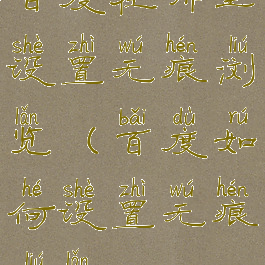 shè zhì wú hén liú
设置无痕浏
lǎn bǎi dù rú
览（百度如
hé shè zhì wú hén
何设置无痕
liú lǎn